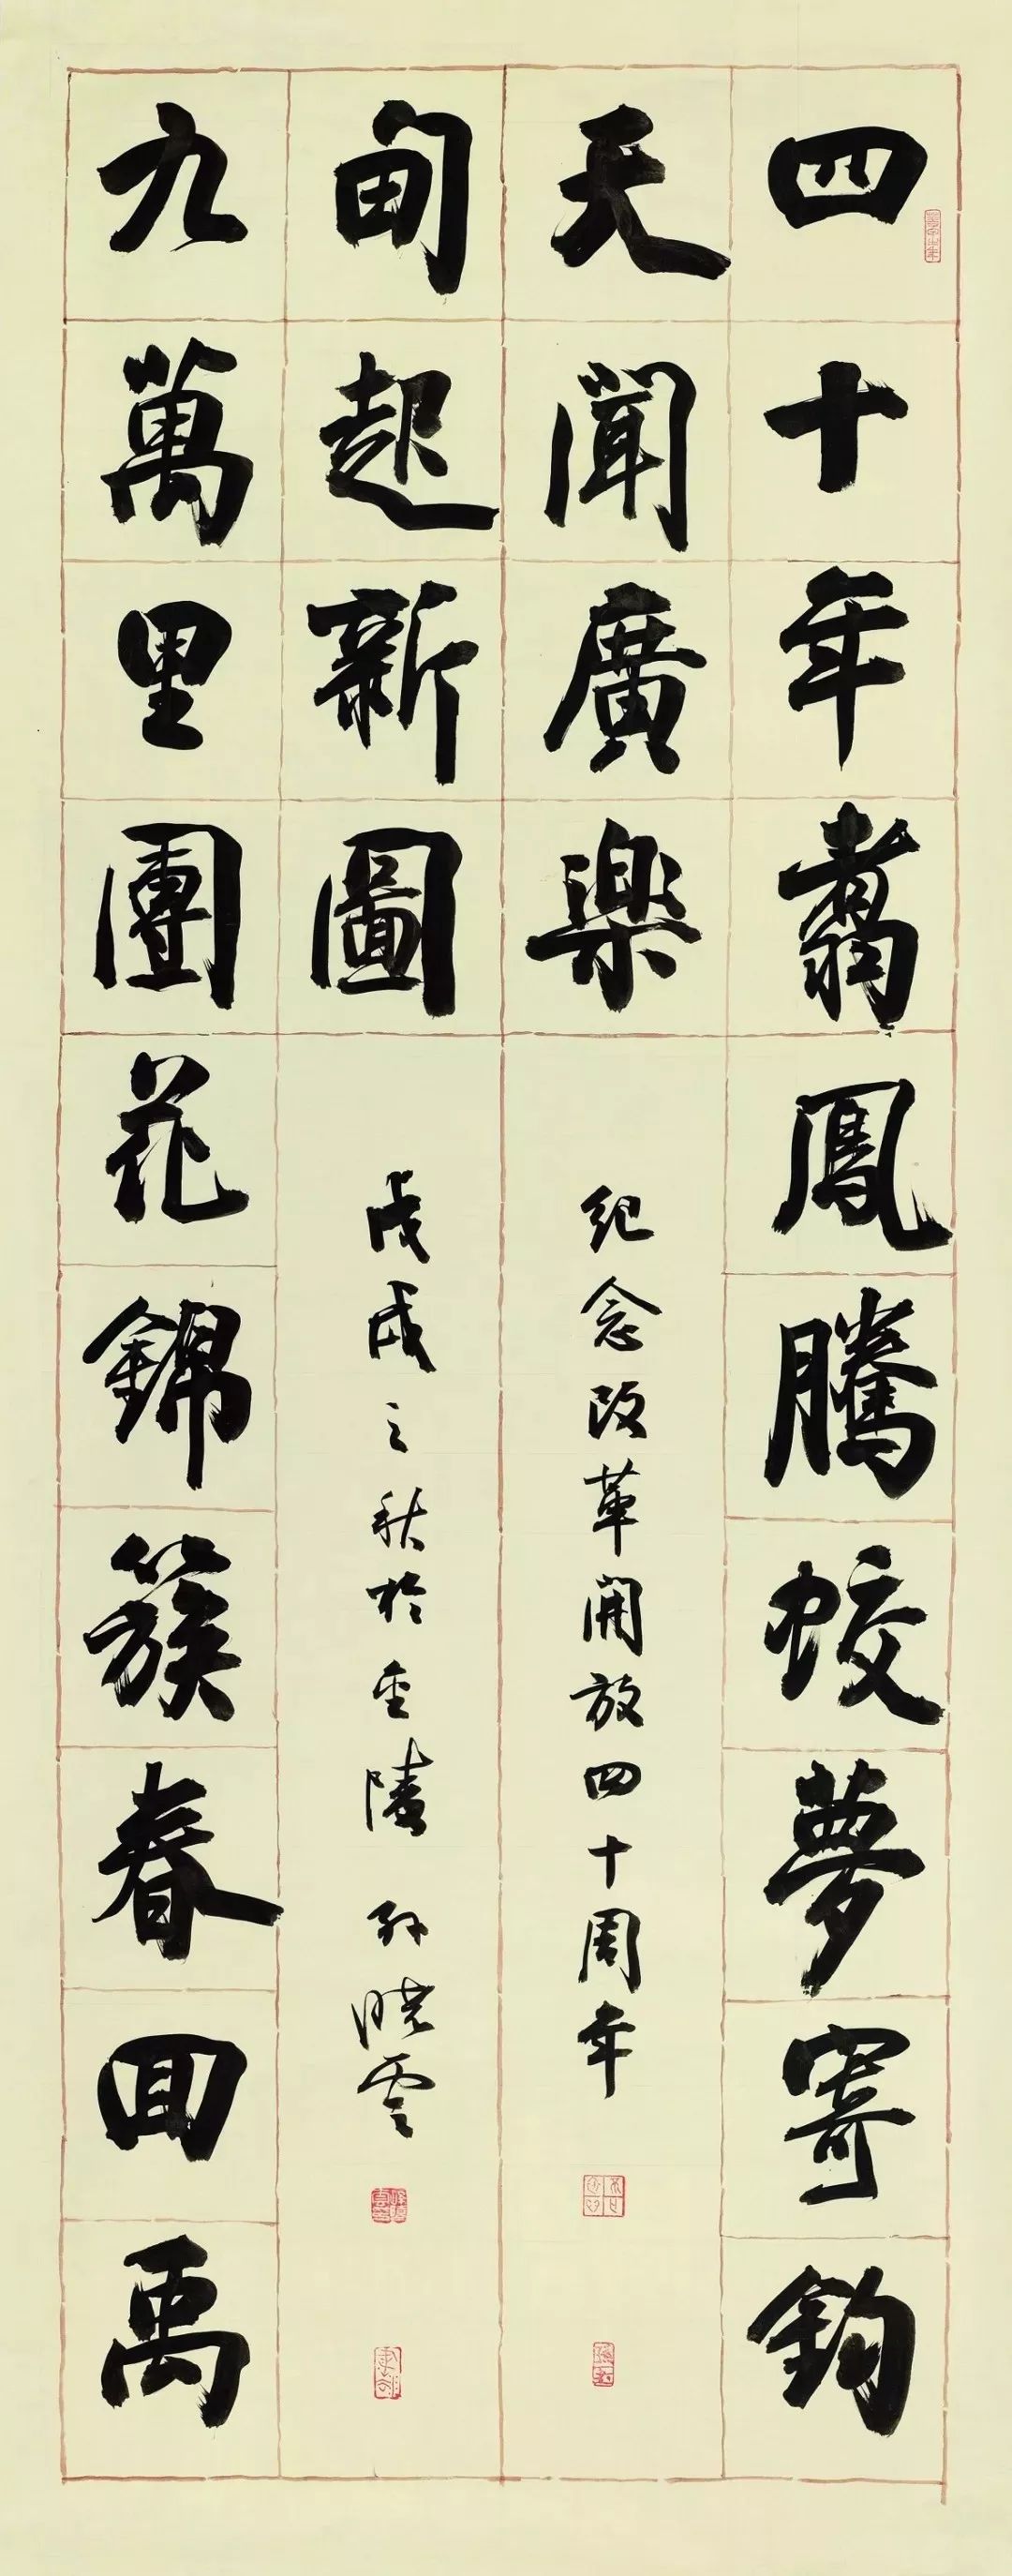 四十年翥鳳騰蛟夢寄鈞
天聞廣樂
九萬里團花錦簇春回禹
甸起新圖
紀念改革開放四十周年
戊戌之秋於金陵 孫曉雲